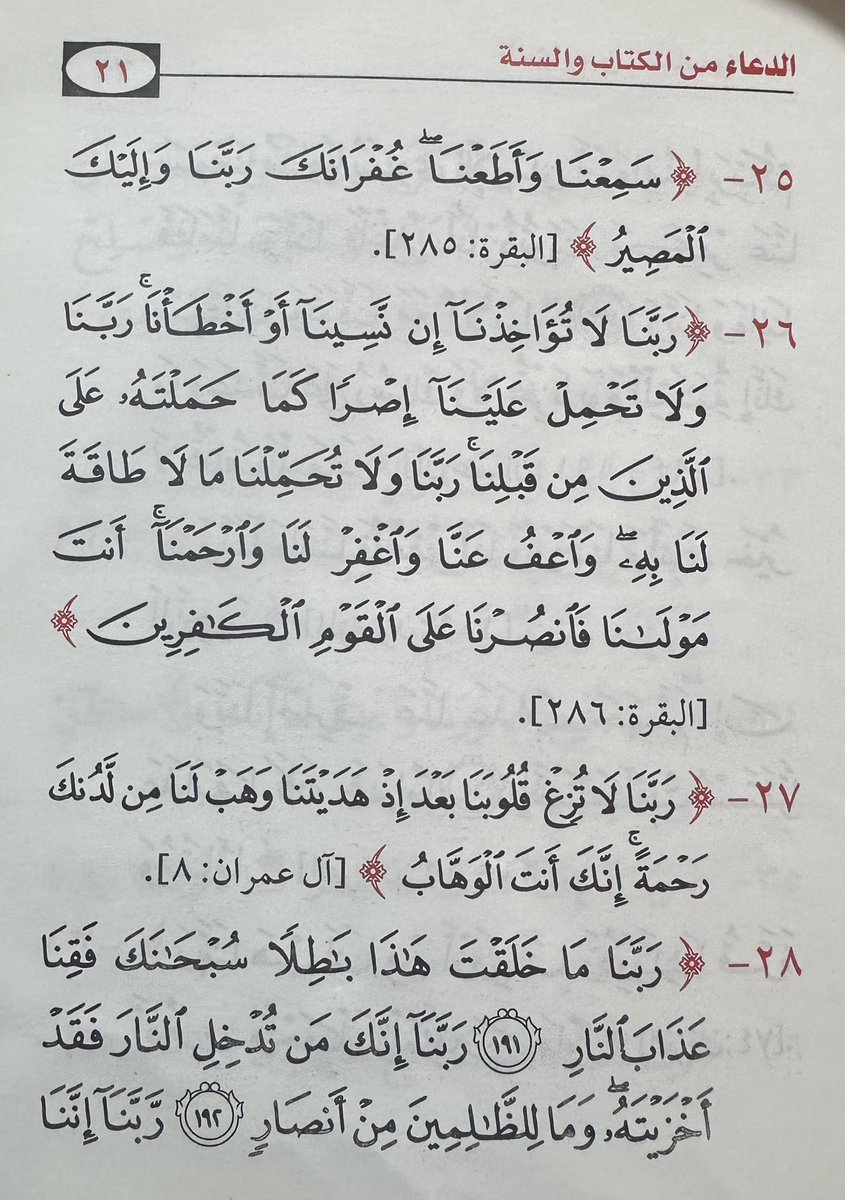 الدعاء من الكتاب والسنة
٢١
٢٥- ﴿ سَمِعْنَا وَأَطَعْنَاۖ غُفْرَانَكَ رَبَّنَا وَإِلَيْكَ
ٱلْمَصِيرُ ﴾ [البقرة: ٢٨٥].
٢٦- ﴿ رَبَّنَا لَا تُؤَاخِذْنَآ إِن نَّسِينَآ أَوْ أَخْطَأْنَاۚ رَبَّنَا
وَلَا تَحْمِلْ عَلَيْنَآ إِصْرًا كَمَا حَمَلْتَهُۥ عَلَى
ٱلَّذِينَ مِن قَبْلِنَاۚ رَبَّنَا وَلَا تُحَمِّلْنَا مَا لَا طَاقَةَ
لَنَا بِهِۦۖ وَٱعْفُ عَنَّا وَٱغْفِرْ لَنَا وَٱرْحَمْنَآۚ أَنتَ
مَوْلَىٰنَا فَٱنصُرْنَا عَلَى ٱلْقَوْمِ ٱلْكَٰفِرِينَ ﴾
[البقرة: ٢٨٦].
٢٧- ﴿ رَبَّنَا لَا تُزِغْ قُلُوبَنَا بَعْدَ إِذْ هَدَيْتَنَا وَهَبْ لَنَا مِن لَّدُنكَ
رَحْمَةًۚ إِنَّكَ أَنتَ ٱلْوَهَّابُ ﴾ [آل عمران: ٨].
٢٨- ﴿ رَبَّنَا مَا خَلَقْتَ هَٰذَا بَٰطِلًا سُبْحَٰنَكَ فَقِنَا
عَذَابَ ٱلنَّارِ ١٩١ رَبَّنَآ إِنَّكَ مَن تُدْخِلِ ٱلنَّارَ فَقَدْ
أَخْزَيْتَهُۥۖ وَمَا لِلظَّٰلِمِينَ مِنْ أَنصَارٍ ١٩٢ رَّبَّنَآ إِنَّنَا